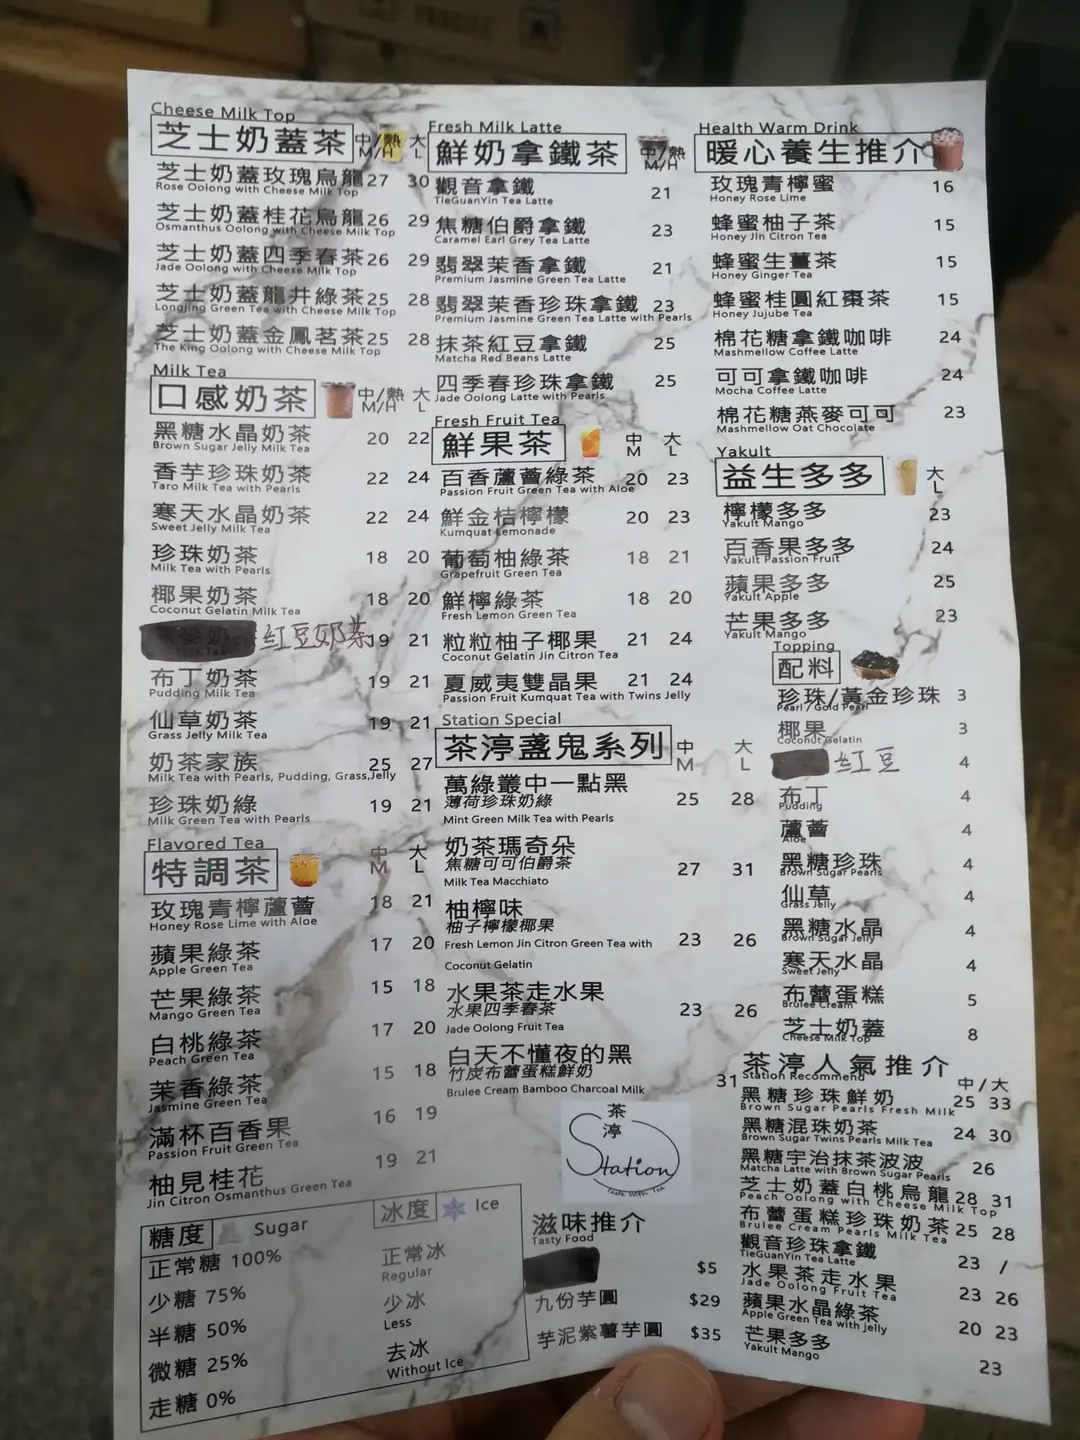 Cheese Milk Top
芝士奶蓋茶 中/熱 M/H 大 L
芝士奶蓋玫瑰烏龍 27 30
Rose Oolong with Cheese Milk Top
芝士奶蓋桂花烏龍 26 29
Osmanthus Oolong with Cheese Milk Top
芝士奶蓋四季春茶 26 29
Jade Oolong with Cheese Milk Top
芝士奶蓋龍井綠茶 25 28
Longjing Green Tea with Cheese Milk Top
芝士奶蓋金鳳茗茶 25 28
The King Oolong with Cheese Milk Top
Milk Tea
口感奶茶 中/熱 M/H 大 L
黑糖水晶奶茶 20 22
Brown Sugar Jelly Milk Tea
香芋珍珠奶茶 22 24
Taro Milk Tea with Pearls
寒天水晶奶茶 22 24
Sweet Jelly Milk Tea
珍珠奶茶 18 20
Milk Tea with Pearls
椰果奶茶 18 20
Coconut Gelatin Milk Tea
紅豆奶茶 19 21
布丁奶茶 19 21
Pudding Milk Tea
仙草奶茶 19 21
Grass Jelly Milk Tea
奶茶家族 25 27
Milk Tea with Pearls, Pudding, Grass Jelly
珍珠奶綠 19 21
Milk Green Tea with Pearls
Flavored Tea
特調茶 中 M 大 L
玫瑰青檸蘆薈 18 21
Honey Rose Lime with Aloe
蘋果綠茶 17 20
Apple Green Tea
芒果綠茶 15 18
Mango Green Tea
白桃綠茶 17 20
Peach Green Tea
茉香綠茶 15 18
Jasmine Green Tea
滿杯百香果 16 19
Passion Fruit Green Tea
柚見桂花 19 21
Jin Citron Osmanthus Green Tea
糖度 Sugar
正常糖 100%
少糖 75%
半糖 50%
微糖 25%
走糖 0%
冰度 Ice
正常冰
Regular
少冰
Less
去冰
Without Ice
Fresh Milk Latte
鮮奶拿鐵茶 中/熱 M/H
觀音拿鐵 21
TieGuanYin Tea Latte
焦糖伯爵拿鐵 23
Caramel Earl Grey Tea Latte
翡翠茉香拿鐵 21
Premium Jasmine Green Tea Latte
翡翠茉香珍珠拿鐵 23
Premium Jasmine Green Tea Latte with Pearls
抹茶紅豆拿鐵 25
Matcha Red Beans Latte
四季春珍珠拿鐵 25
Jade Oolong Latte with Pearls
Fresh Fruit Tea
鮮果茶 中 M 大 L
百香蘆薈綠茶 20 23
Passion Fruit Green Tea with Aloe
鮮金桔檸檬 20 23
Kumquat Lemonade
葡萄柚綠茶 18 21
Grapefruit Green Tea
鮮檸綠茶 18 20
Fresh Lemon Green Tea
粒粒柚子椰果 21 24
Coconut Gelatin Jin Citron Tea
夏威夷雙晶果 21 24
Passion Fruit Kumquat Tea with Twins Jelly
Station Special
茶渟盞鬼系列 中 M 大 L
萬綠叢中一點黑
薄荷珍珠奶綠 25 28
Mint Green Milk Tea with Pearls
奶茶瑪奇朵
焦糖可可伯爵茶 27 31
Milk Tea Macchiato
柚檸味
柚子檸檬椰果
Fresh Lemon Jin Citron Green Tea with 23 26
Coconut Gelatin
水果茶走水果
水果四季春茶 23 26
Jade Oolong Fruit Tea
白天不懂夜的黑
竹炭布蕾蛋糕鮮奶 31
Brulee Cream Bamboo Charcoal Milk
茶渟
Station
Taste With Tea
滋味推介
Tasty Food
$5
九份芋圓 $29
芋泥紫薯芋圓 $35
Health Warm Drink
暖心養生推介
玫瑰青檸蜜 16
Honey Rose Lime
蜂蜜柚子茶 15
Honey Jin Citron Tea
蜂蜜生薑茶 15
Honey Ginger Tea
蜂蜜桂圓紅棗茶 15
Honey Jujube Tea
棉花糖拿鐵咖啡 24
Mashmellow Coffee Latte
可可拿鐵咖啡 24
Mocha Coffee Latte
棉花糖燕麥可可 23
Mashmellow Oat Chocolate
Yakult
益生多多 大 L
檸檬多多 23
Yakult Mango
百香果多多 24
Yakult Passion Fruit
蘋果多多 25
Yakult Apple
芒果多多 23
Yakult Mango
Topping
配料
珍珠/黃金珍珠 3
Pearl / Gold Pearl
椰果 3
Coconut Gelatin
紅豆 4
布丁 4
Pudding
蘆薈 4
Aloe
黑糖珍珠 4
Brown Sugar Pearls
仙草 4
Grass Jelly
黑糖水晶 4
Brown Sugar Jelly
寒天水晶 4
Sweet Jelly
布蕾蛋糕 5
Brulee Cream
芝士奶蓋 8
Cheese Milk Top
茶渟人氣推介
Station Recommend 中/大
黑糖珍珠鮮奶 25 33
Brown Sugar Pearls Fresh Milk
黑糖混珠奶茶 24 30
Brown Sugar Twins Pearls Milk Tea
黑糖宇治抹茶波波 26
Matcha Latte with Brown Sugar Pearls
芝士奶蓋白桃烏龍 28 31
Peach Oolong with Cheese Milk Top
布蕾蛋糕珍珠奶茶 25 28
Brulee Cream Pearls Milk Tea
觀音珍珠拿鐵 23 /
TieGuanYin Tea Latte
水果茶走水果 23 26
Jade Oolong Fruit Tea
蘋果水晶綠茶 20 23
Apple Green Tea with jelly
芒果多多 23
Yakult Mango